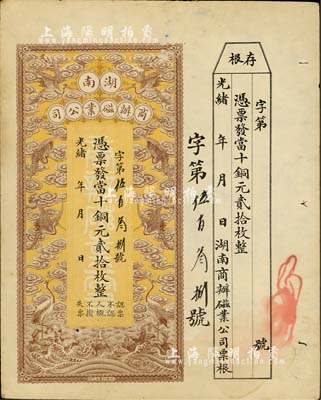 上海陽明拍賣
存根
字第 號
憑票發當十銅元貳拾枚整
光緒 年 月 日湖南商辦磁業公司票根
字第伍百 捌號
湖南
商辦磁業公司
字第伍百 捌號
憑票發當十銅元貳拾枚整
光緒 年 月 日
認票不認人
失票概不掛
上海陽明拍賣